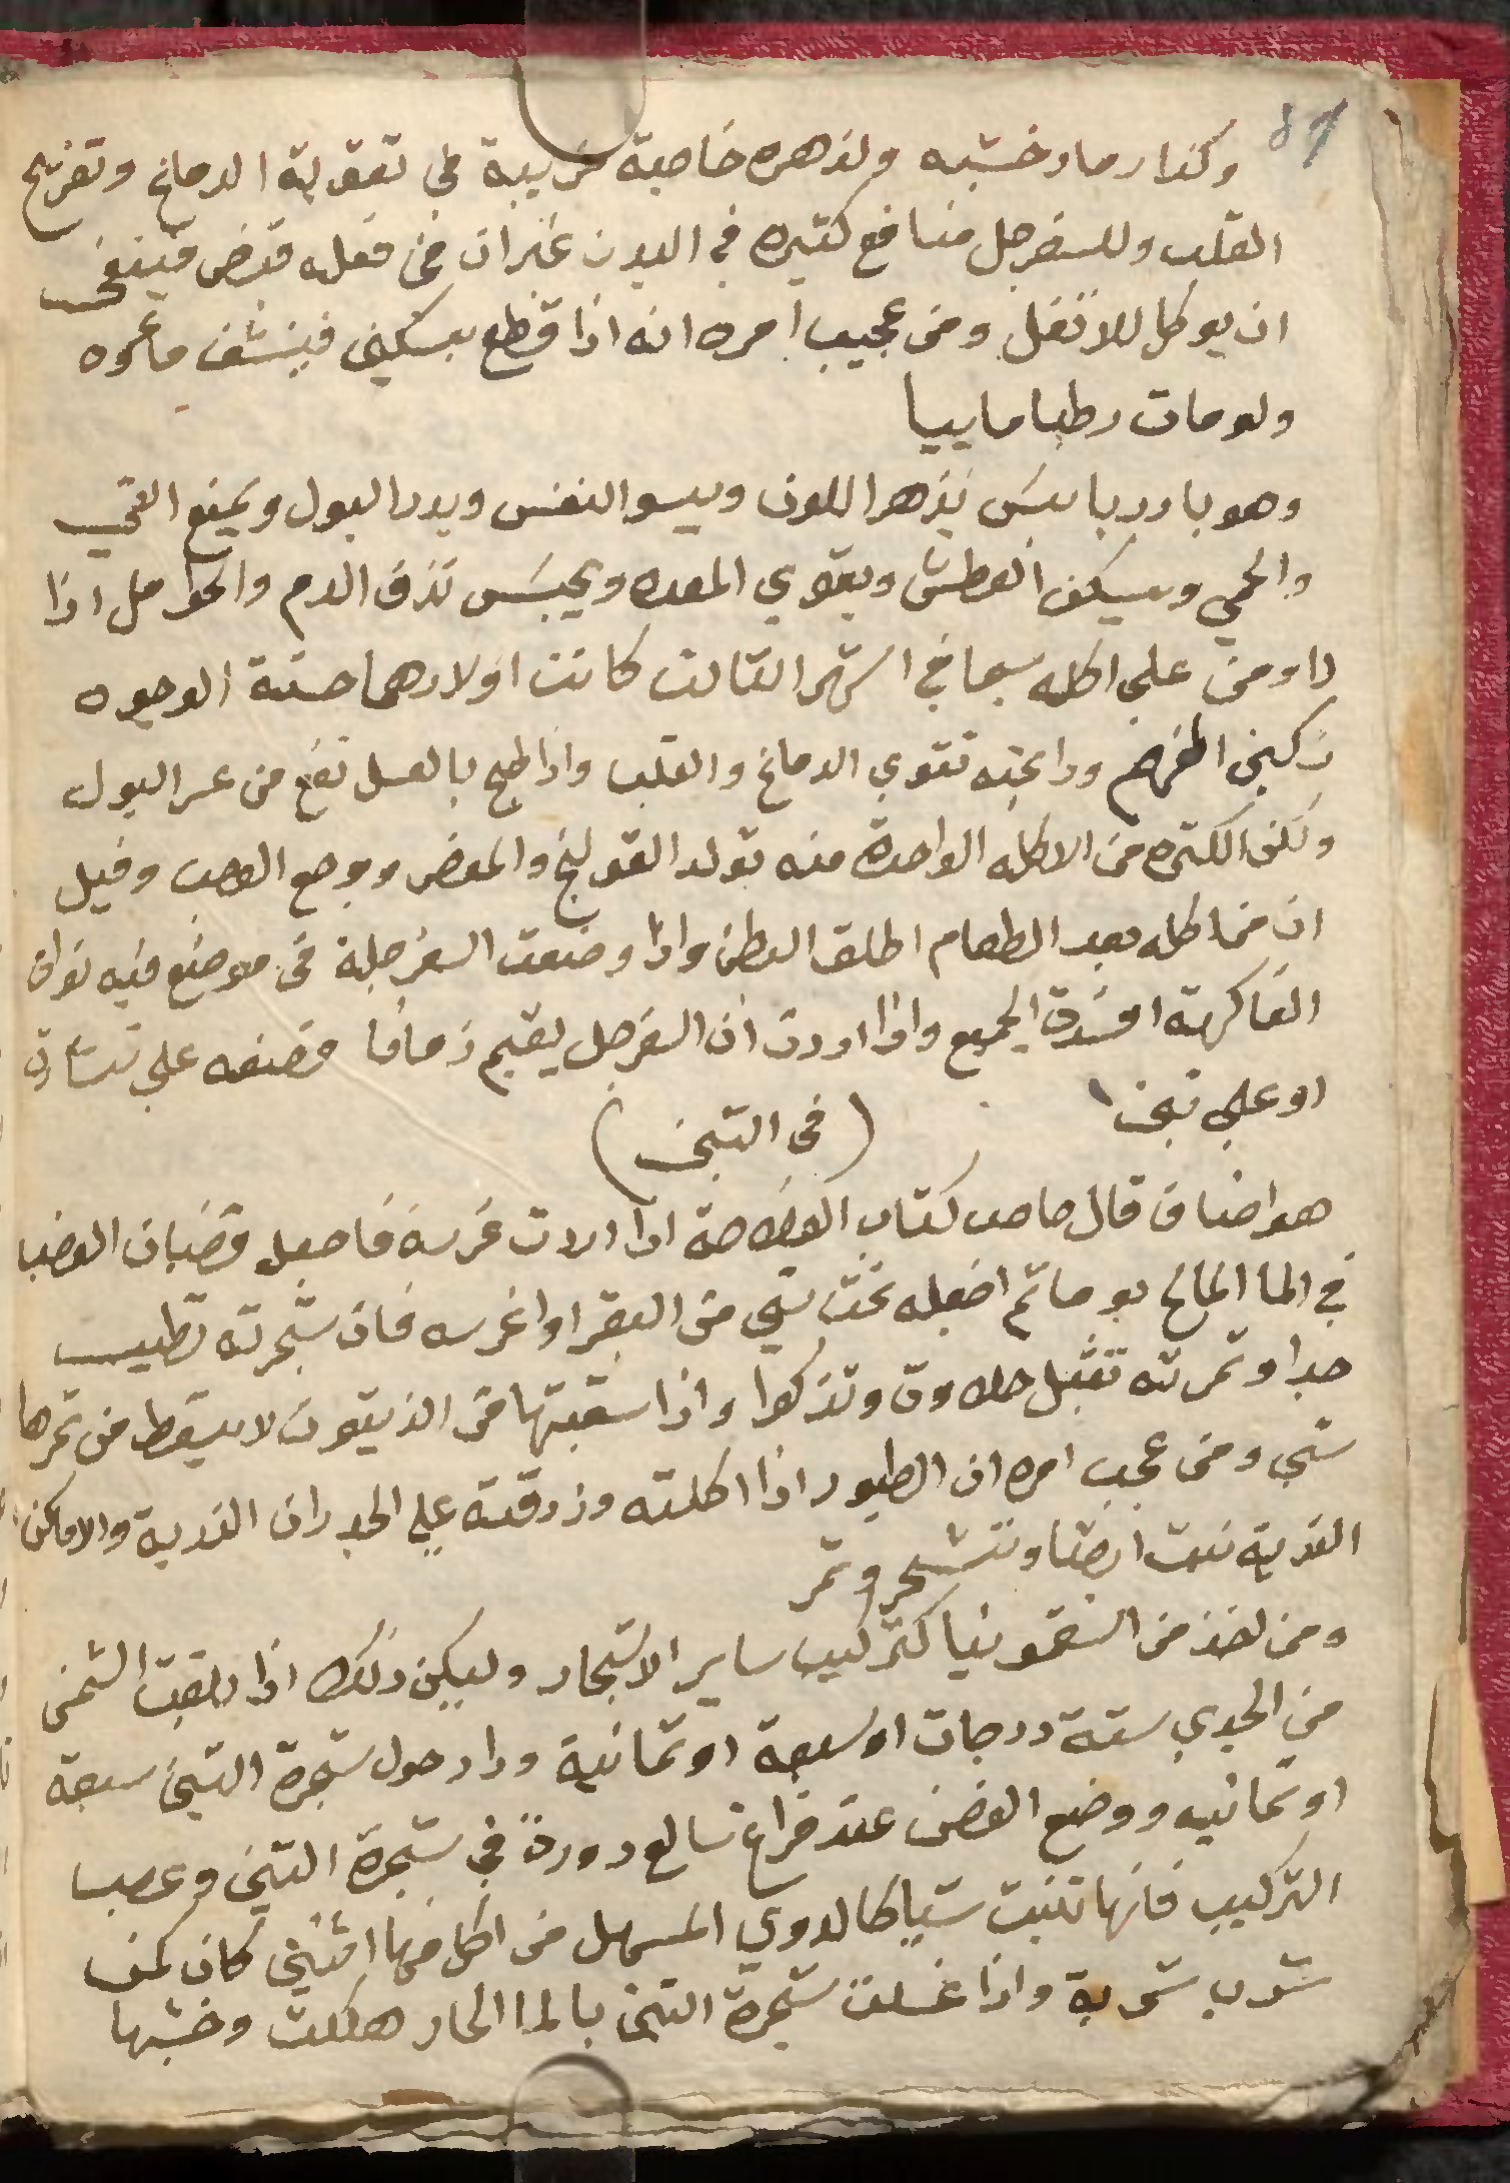 وكذا رماد خشبه ولزهره خاصية غريبة في تقوية الدماغ وتفريح
القلب وللسفرجل منافع كتيره في البدن غير ان في فعله قبض فينبغي
ان يوكل للاتفل ومن عجيب امره انه اذا قطع بسكين فينشف ماءه
ولو مات رطبا ماييا
وهو بارد يابس يزهر اللون ويسر النفس ويدر البول ويمنع القي
والحمي ويسكن العطش ويقوي المعده ويحبس نزف الدم والحوامل اذا
داومن علي اكله سيما في الشهر التالت كانت اولادهما حسنة الوجوه
زكين الفهم ورايحته تقوي الدماغ والقلب واذا طبخ بالعسل نفع من عسر البول
ولكن الكتره من الاكله الواحدة منه تولد القولنج والمغص ووجع العصب وقيل
ان من اكله بعد الطعام اطلق البطن واذا وضعت السفرجلة في موضع فيه نوات
الفاكهة افسدة الجميع واذا اردت ان السفرجل يقيم زمانا فضعه علي نشارة
او علي تبن
(في التين)
هو اصناف قال صاحب كتاب الفلاحة اذا اردت غرسه فاجعل قضبان الغضبا
في الما المالح يوما تم اجعله تحت شي من البقر او اغرسه فان شجرته تطيب
جدا وتمرته تقبل حلاوة وتزكوا واذا سقيتها من الزيتون لا يسقط من تمرها
شي ومن عجب امره ان الطيور اذا اكلته وزرقته علي الجدران الندية والاماكن
الندية نبت ايضا وتشجر وتمر
ومن اخذ من السقمونيا كتركيب ساير الاشجار وليكن ذلك اذا بلغت الشمس
من الجدي ستة درجات او سبعة او تمانية ودار حول شجرة التين سبعة
او تمانيه ووضع الغصن عند فراغ تسابع دورة في شجرة التين وعصب
التركيب فانها تنبت شيا كالدوي المسهل من اكل منها اتنين كان كمن
شرب شربة واذا غسلت شجرة التين بالما الحار هلكت وخشبها